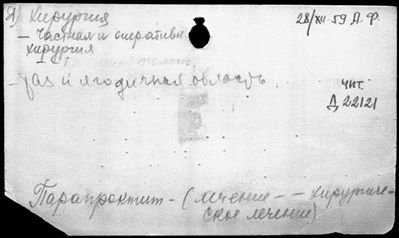 Я) Хирургия
28/XII 59 А.Ф.
– Частная и оперативн
хирургия
– Таз и ягодичная область.
чит.
Д 22121
Парапроктит – (лечение – – хирургиче-
ское лечение)